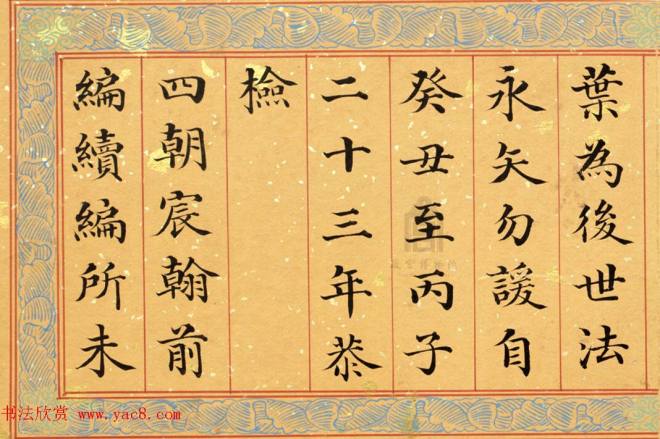 葉為後世法
永矢勿諼自
癸丑至丙子
二十三年恭
檢
四朝宸翰前
編續編所未
书法欣赏 www.yac8.com